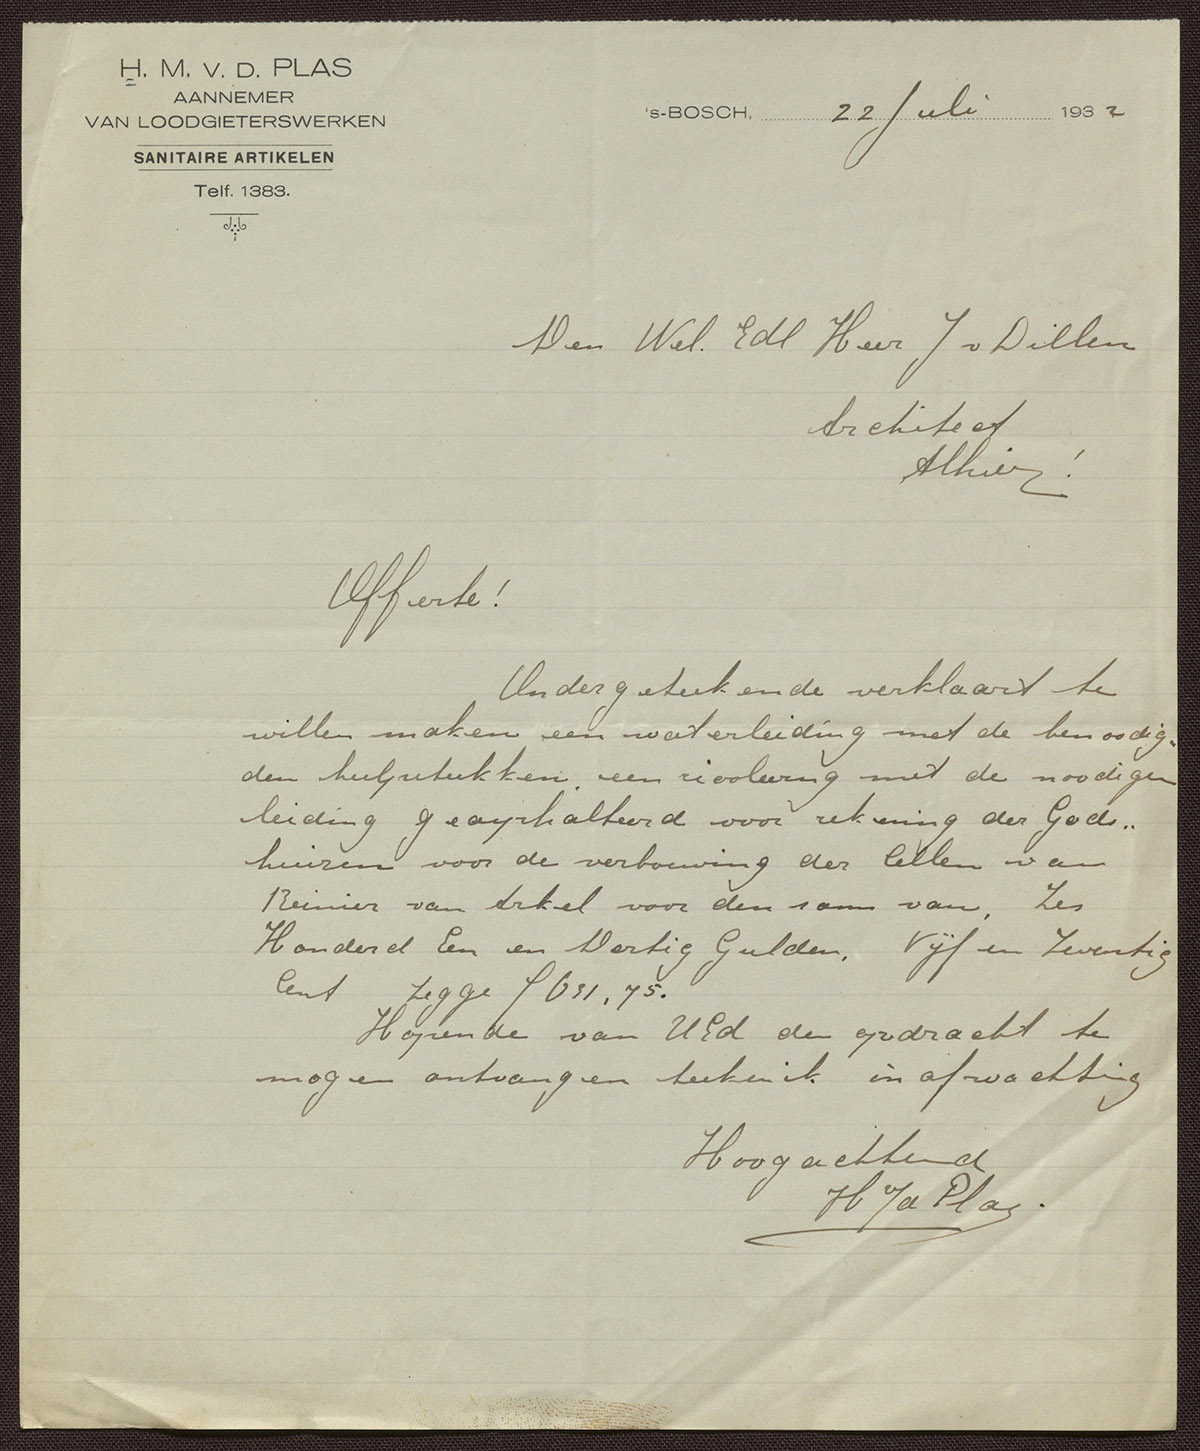 H. M. V. D. PLAS
AANNEMER
VAN LOODGIETERSWERKEN
SANITAIRE ARTIKELEN
Telf. 1383.
's-BOSCH, 22 Juli 1932
Den Wel. Edl Heer J v Dillen
Architect
Alhier!
Offerte!
Ondergetekende verklaart te
willen maken een waterleiding met de benoodig„
den hulpstukken, een riooleering met de noodigen
leiding geasphalteerd voor rekening der Gods„
huizen voor de verbouwing der Cellen van
Reinier van Arkel voor den som van, Zes
Honderd Een en Dertig Gulden, Vijf en Zeventig
Cent zegge f 631,75.
Hopende van UEd den opdracht te
mogen ontvangen teeken ik in afwachting
Hoogachtend
H Vd Plas.